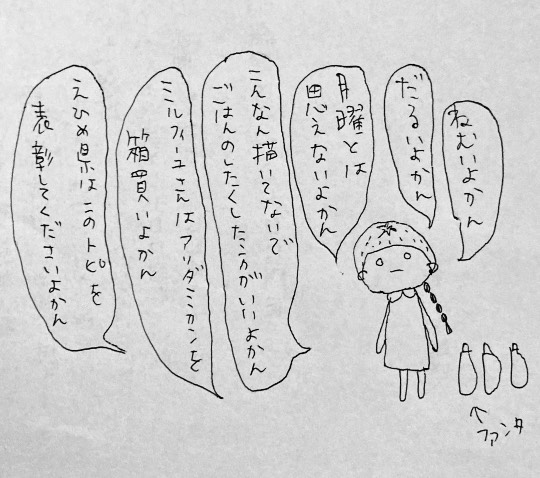 ねむいよかん
だるいよかん
月曜とは
思えないよかん
こんなん描いてないで
ごはんのしたくしたほうがいいよかん
ミルフィーユさんはアリダミカンを
箱買いよかん
えひめ県はこのトピを
表彰してくださいよかん
ファンタ